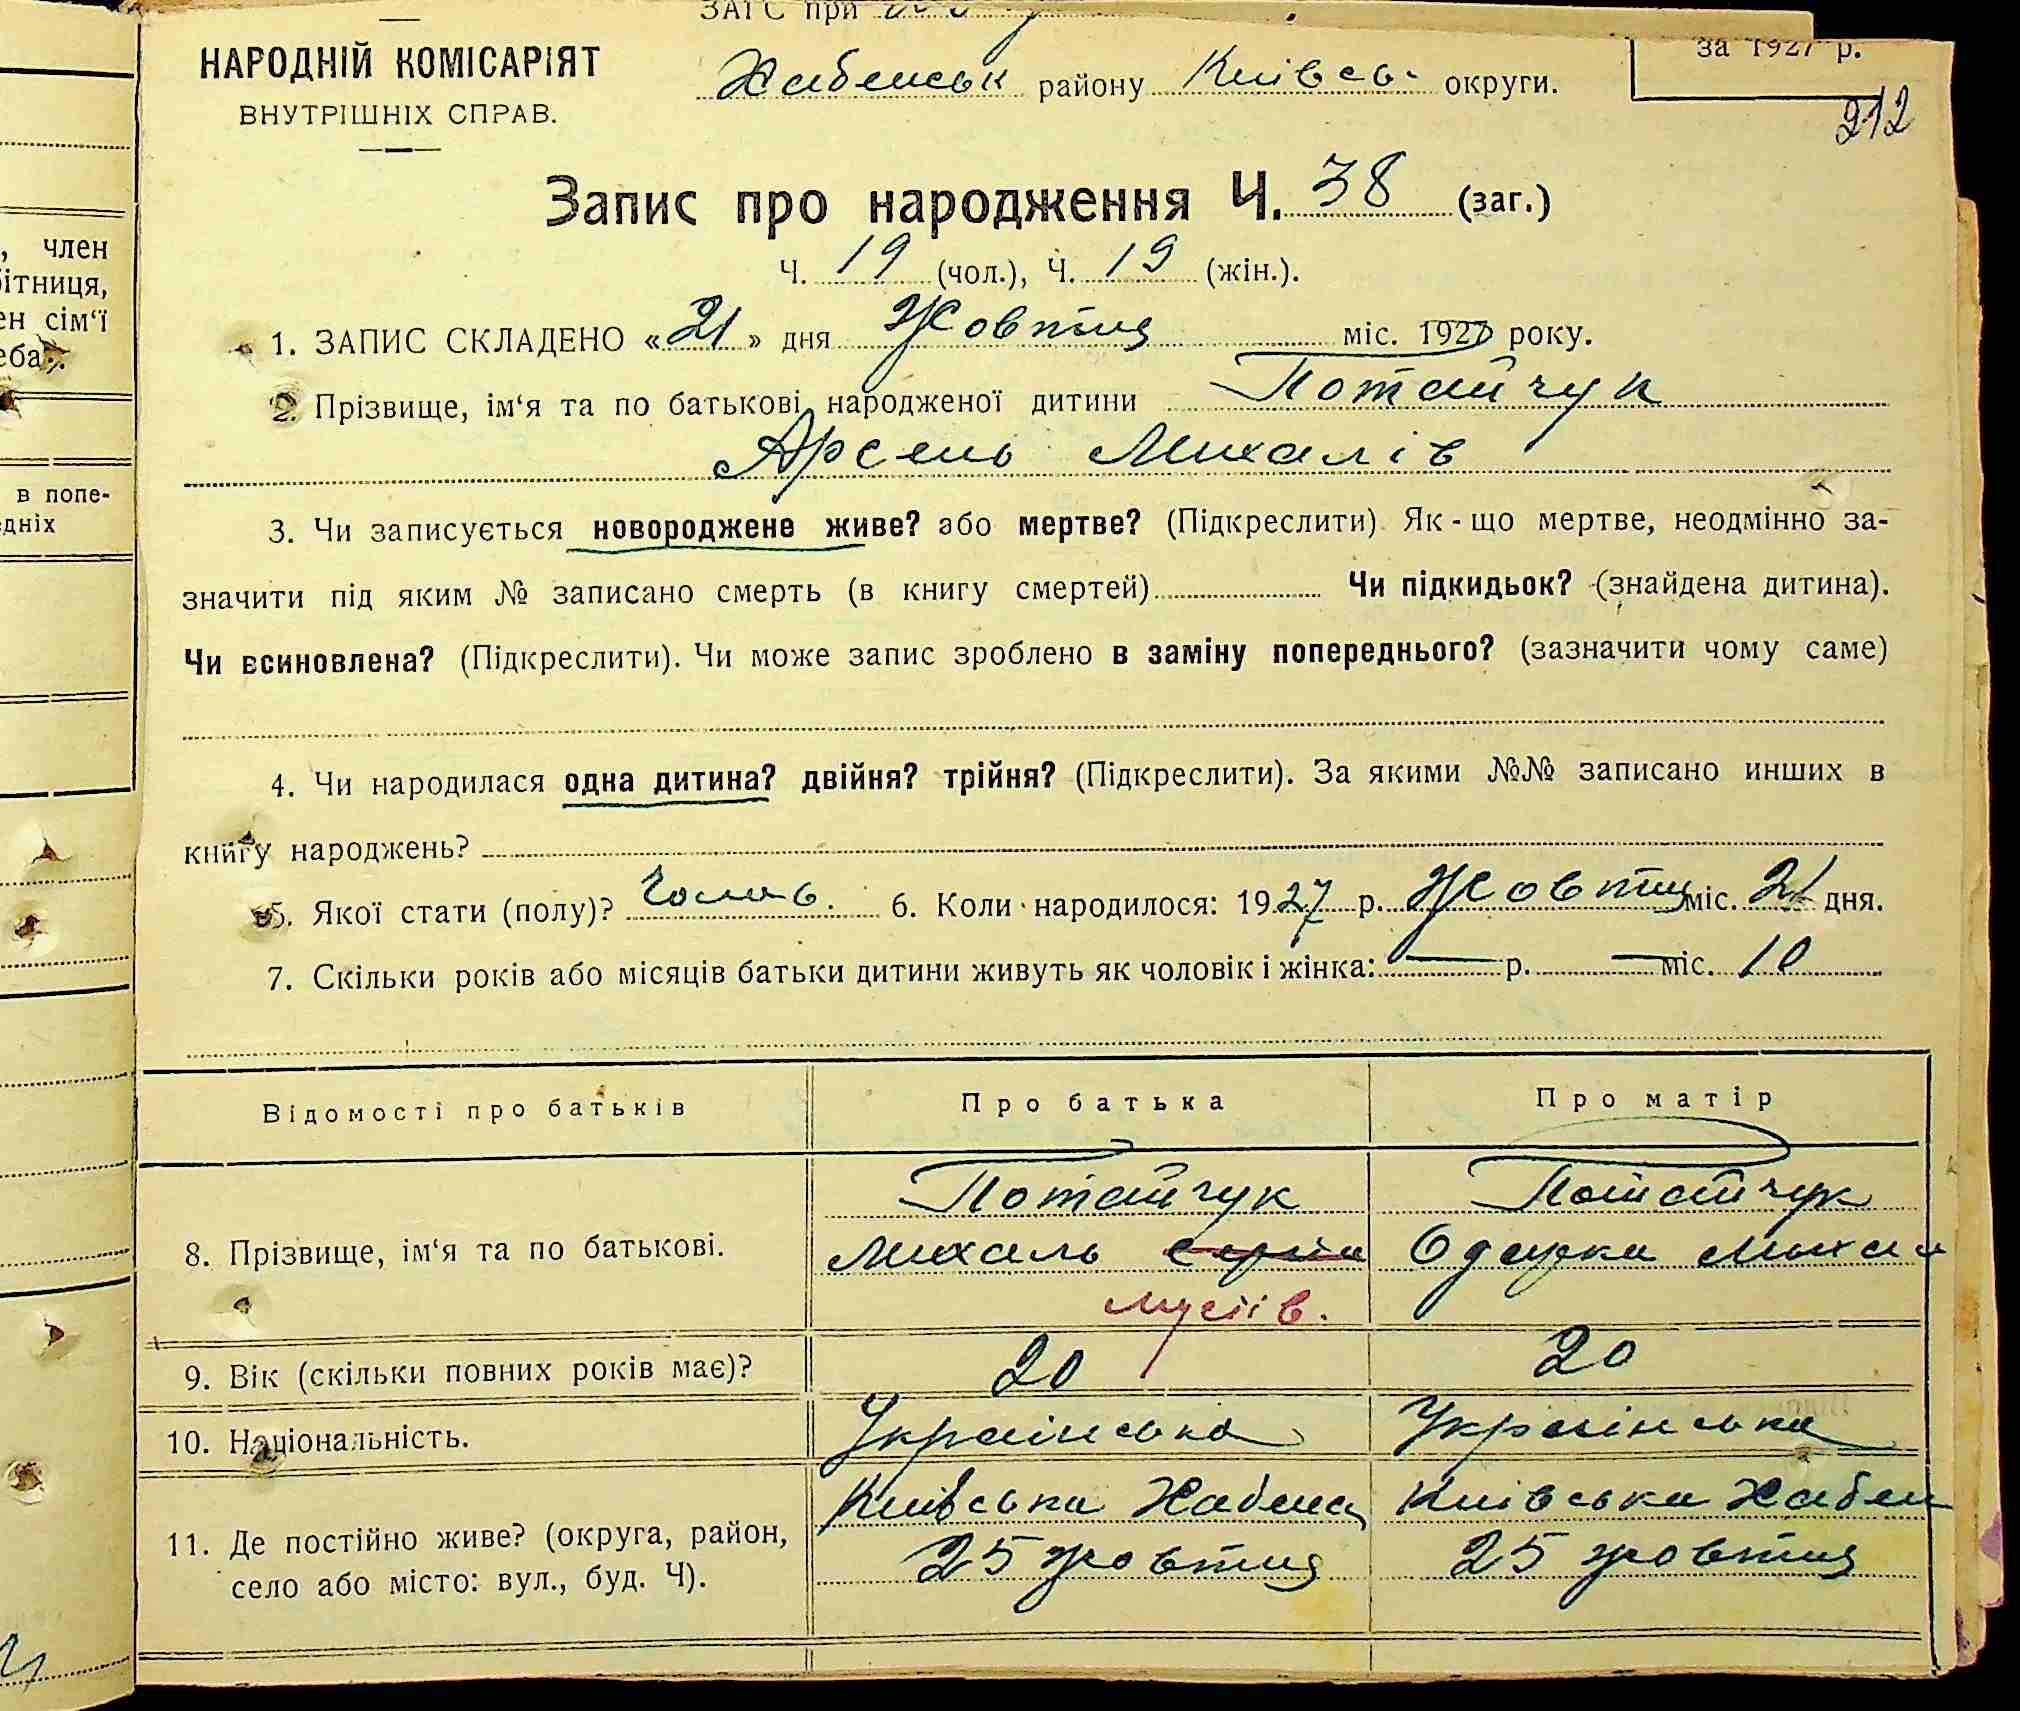 ЗАГС при
НАРОДНІЙ КОМІСАРІЯТ
ВНУТРІШНІХ СПРАВ.
Хабенськ району Київсь. округи.
за 1927 р.
212
Запис про народження Ч. 38 (заг.)
Ч. 19 (чол.), Ч. 19 (жін.).
1. ЗАПИС СКЛАДЕНО «21» дня Жовтня міс. 1927 року.
2. Прізвище, ім'я та по батькові народженої дитини Потайчук
Арсень Михалів
3. Чи записується новороджене живе? або мертве? (Підкреслити) Як-що мертве, неодмінно за-
значити під яким № записано смерть (в книгу смертей) Чи підкидьок? (знайдена дитина).
Чи всиновлена? (Підкреслити). Чи може запис зроблено в заміну попереднього? (зазначити чому саме)
4. Чи народилася одна дитина? двійня? трійня? (Підкреслити). За якими №№ записано инших в
книгу народжень?
5. Якої стати (полу)? Чолов. 6. Коли народилося: 1927 р. Жовтня міс. 21 дня.
7. Скільки років або місяців батьки дитини живуть як чоловік і жінка: — р. — міс. 10
Відомості про батьків Про батька Про матір
8. Прізвище, ім'я та по батькові.
Потайчук
Михаль
мусіїв.
Потайчук
Одарка Михал
9. Вік (скільки повних років має)? 20 20
10. Національність. Українська Українська
11. Де постійно живе? (округа, район,
село або місто: вул., буд. Ч).
Київська Хабенс
25 жовтня
Київська Хабен
25 жовтня
, член
бітниця,
ен сім'ї
еба.
в попе-
едніх